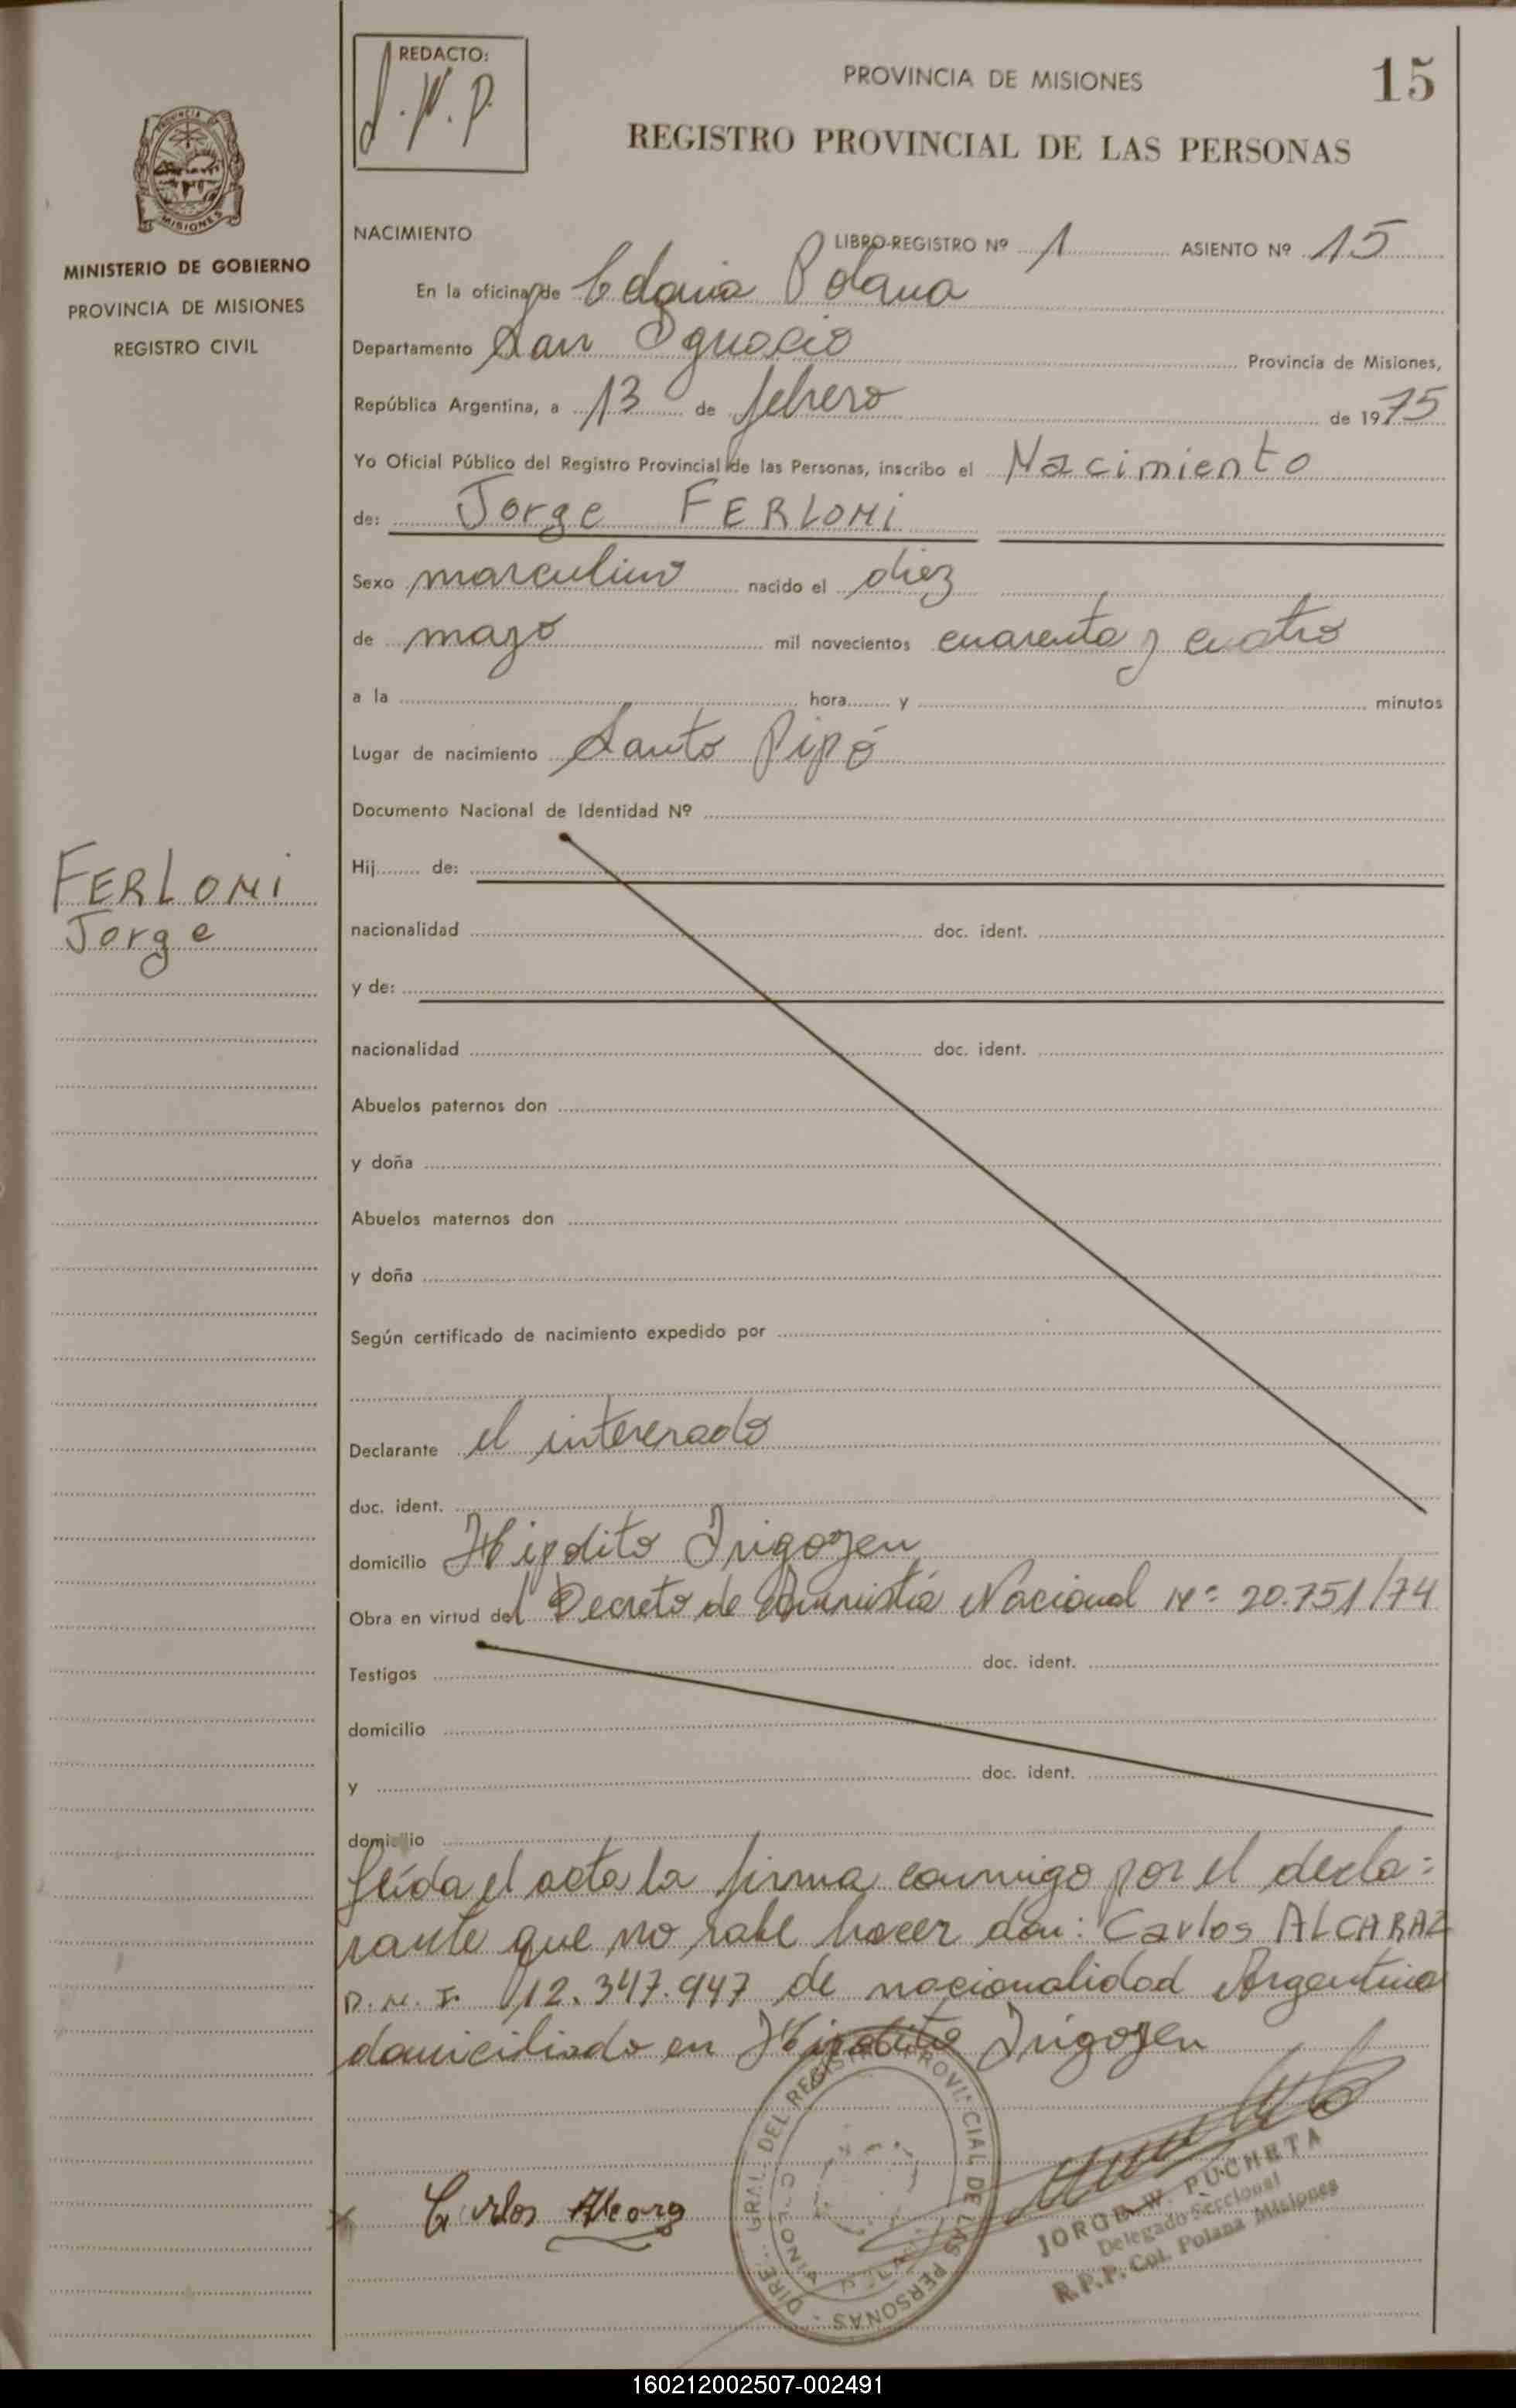 REDACTO:
J.W.P.
PROVINCIA DE MISIONES
15
REGISTRO PROVINCIAL DE LAS PERSONAS
PROVINCIA DE
MISIONES
MINISTERIO DE GOBIERNO
PROVINCIA DE MISIONES
REGISTRO CIVIL
NACIMIENTO
LIBRO-REGISTRO Nº 1 ASIENTO Nº 15
En la oficina de Colonia Polana
Departamento San Ignacio Provincia de Misiones,
República Argentina, a 13 de febrero de 1975
Yo Oficial Público del Registro Provincial de las Personas, inscribo el Nacimiento
de: Jorge FERLONI
Sexo masculino nacido el diez
de mayo mil novecientos cuarenta y cuatro
a la hora y minutos
Lugar de nacimiento Santo Pipó
Documento Nacional de Identidad Nº
Hij de:
FERLONI
Jorge
nacionalidad doc. ident.
y de:
nacionalidad doc. ident.
Abuelos paternos don
y doña
Abuelos maternos don
y doña
Según certificado de nacimiento expedido por
Declarante el interesado
doc. ident.
domicilio Hipolito Irigoyen
Obra en virtud del Decreto de Amnistía Nacional Nº 20.751/74
Testigos doc. ident.
domicilio
y doc. ident.
domicilio
Leída el acta la firma conmigo por el decla=
rante que no sabe hacer don: Carlos ALCARAZ
D.N.I. 12.347.947 de nacionalidad Argentina
domiciliado en Hipolito Irigoyen
DIRE. GRAL. DEL REGISTRO PROVINCIAL DE LAS PERSONAS
Carlos Alcaraz
JORGE W. PUCHETA
Delegado Seccional
R.P.P. Col. Polana Misiones
160212002507-002491